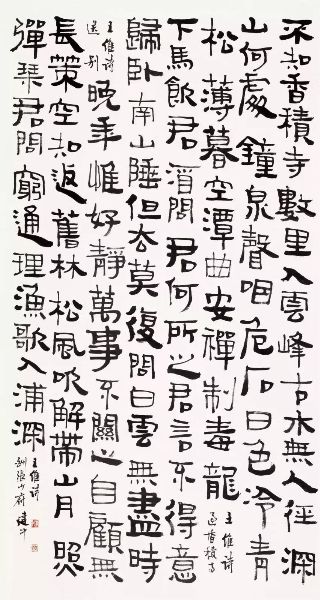 不知香積寺數里入雲峰古木無人徑深
山何處鐘泉聲咽危石日色冷青
松薄暮空潭曲安禪制毒龍
王維詩
過香積寺
下馬飲君酒問君何所之君言不得意
歸臥南山陲但去莫復問白雲無盡時
王維詩
送別
晚年惟好靜萬事不關心自顧無
長策空知返舊林松風吹解帶山月照
彈琴君問窮通理漁歌入浦深
王維詩
酬張少府